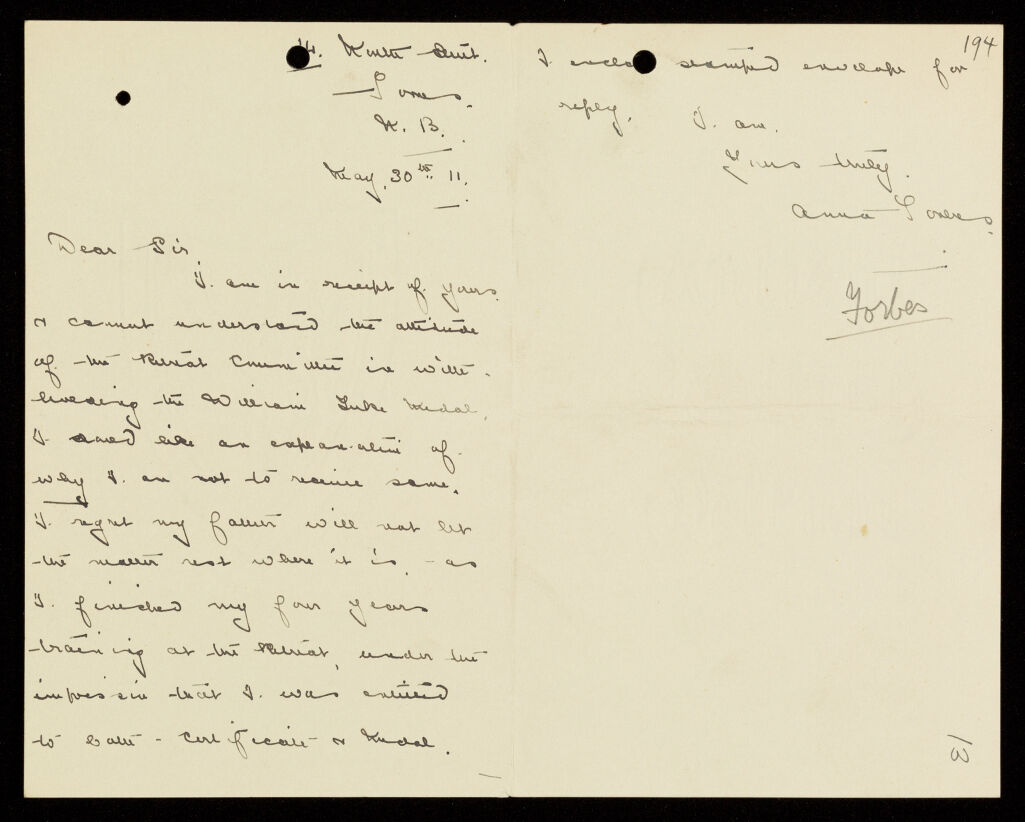 14. North Street.
Forres,
N. B.
May, 30th 11.
Dear Sir,
I. am in receipt of yours.
& cannot understand the attitude
of the Retreat Committee in with-
holding the William Tuke Medal.
I would like an explanation of
why I. am not to receive same.
I. regret my father will not let
the matter rest where it is, - as
I. finished my four years
training at the Retreat, under the
impression that I. was entitled
to both - Certificate & Medal.
194
I enclose stamped envelope for
reply.
I. am.
Yours truly.
Anna Forbes.
Forbes